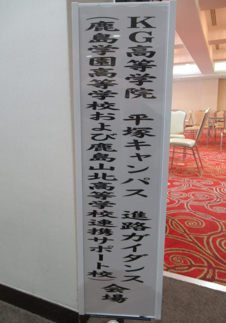 KG高等学院 平塚キャンパス 進路ガイダンス
(鹿島学園高等学校および鹿島山北高等学校連携サポート校)会場